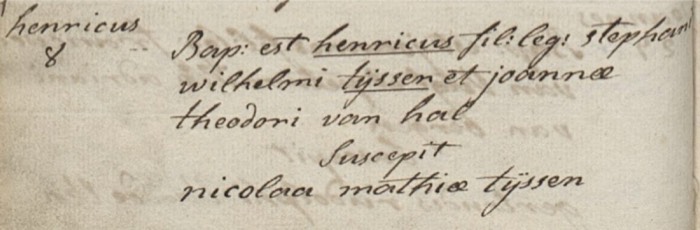 henricus
8
Bap: est henricus fil: leg: stephani
wilhelmi tÿssen et joannæ
theodori van hal
Suscepit
nicolaa mathiæ tÿssen